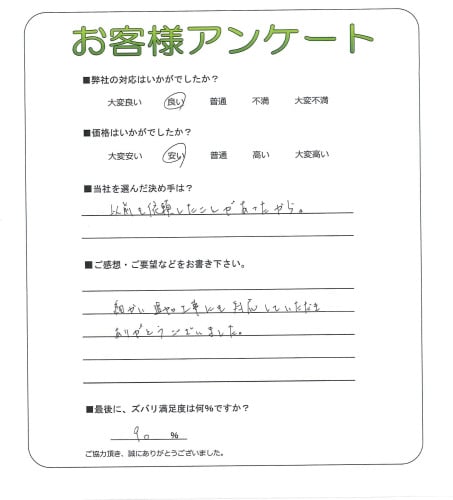 お客様アンケート
■弊社の対応はいかがでしたか？
大変良い 良い 普通 不満 大変不満
■価格はいかがでしたか？
大変安い 安い 普通 高い 大変高い
■当社を選んだ決め手は？
以前も依頼したことがあったから。
■ご感想・ご要望などをお書き下さい。
細かい 工事にも対応していただき
ありがとうございました。
■最後に、ズバリ満足度は何％ですか？
90 ％
ご協力頂き、誠にありがとうございました。